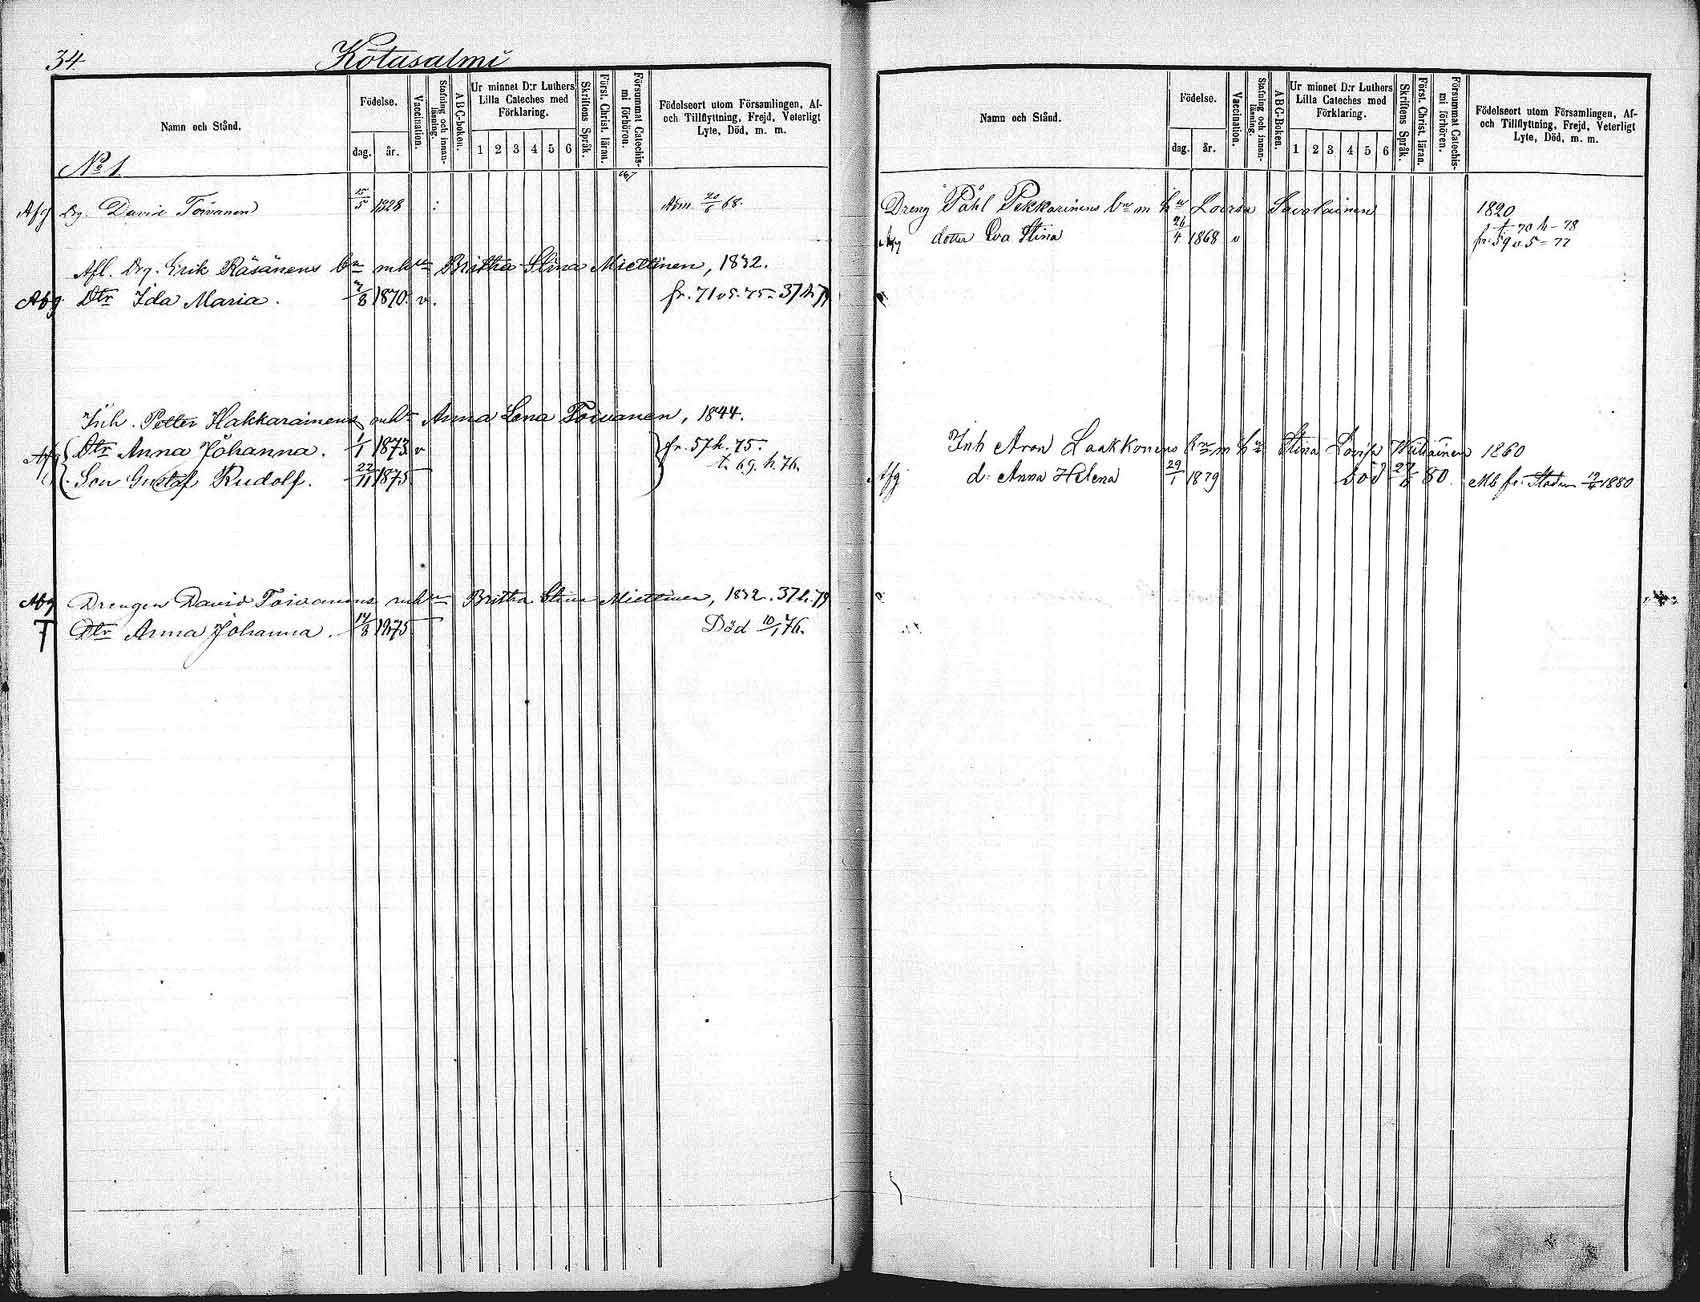 34.
Kotasalmi
Namn och Stånd.
Födelse.
dag.
år.
Vaccination.
Stafning och innan-läsning.
ABC-boken.
Ur minnet D:r Luthers Lilla Cateches med Förklaring.
1 2 3 4 5 6
Skriftens Språk.
Först. Christ. läran.
Försummat Catechis-mi förhören.
Födelseort utom Församlingen, Af- och Tillflyttning, Frejd, Veterligt Lyte, Död, m. m.
No 1.
Afg Drg. David Toivanen 15/5 1828 : Adm 20/6 68.
Afl. Drg. Erik Räsänens bn mhu Britha Stina Miettinen, 1832.
Abg Dtr Ida Maria. 7/8 1870. v. fr. 71 v. 75 = 37 h 79
Inh. Petter Hakkarainens mhu Anna Lena Toivanen, 1844.
Afg Dtr Anna Johanna. 1/1 1873 v fr. 57 h. 75.
Son Gustaf Rudolf. 22/11 1875 t. 69. h. 76.
Abg Drengen David Toivanens mhu Britha Stina Miettinen, 1832. 37 h. 79
† Dtr Anna Johanna. 14/8 1875 Död 10/1 76.
Namn och Stånd.
Födelse.
dag.
år.
Vaccination.
Stafning och innan-läsning.
ABC-boken.
Ur minnet D:r Luthers Lilla Cateches med Förklaring.
1 2 3 4 5 6
Skriftens Språk.
Först. Christ. läran.
Försummat Catechis-mi förhören.
Födelseort utom Församlingen, Af- och Tillflyttning, Frejd, Veterligt Lyte, Död, m. m.
Dreng Påhl Pekkarinens bn m hu Lovisa Savolainen 1820
dotter Eva Stina 26/4 1868 v fr 59 v 5 = 77
Inh Aron Laakkonens bn m hu Stina Lovisa 1860
Afg d: Anna Helena 29/1 1879 Död 27/6 80. Mb fr. Staden 19/6 1880